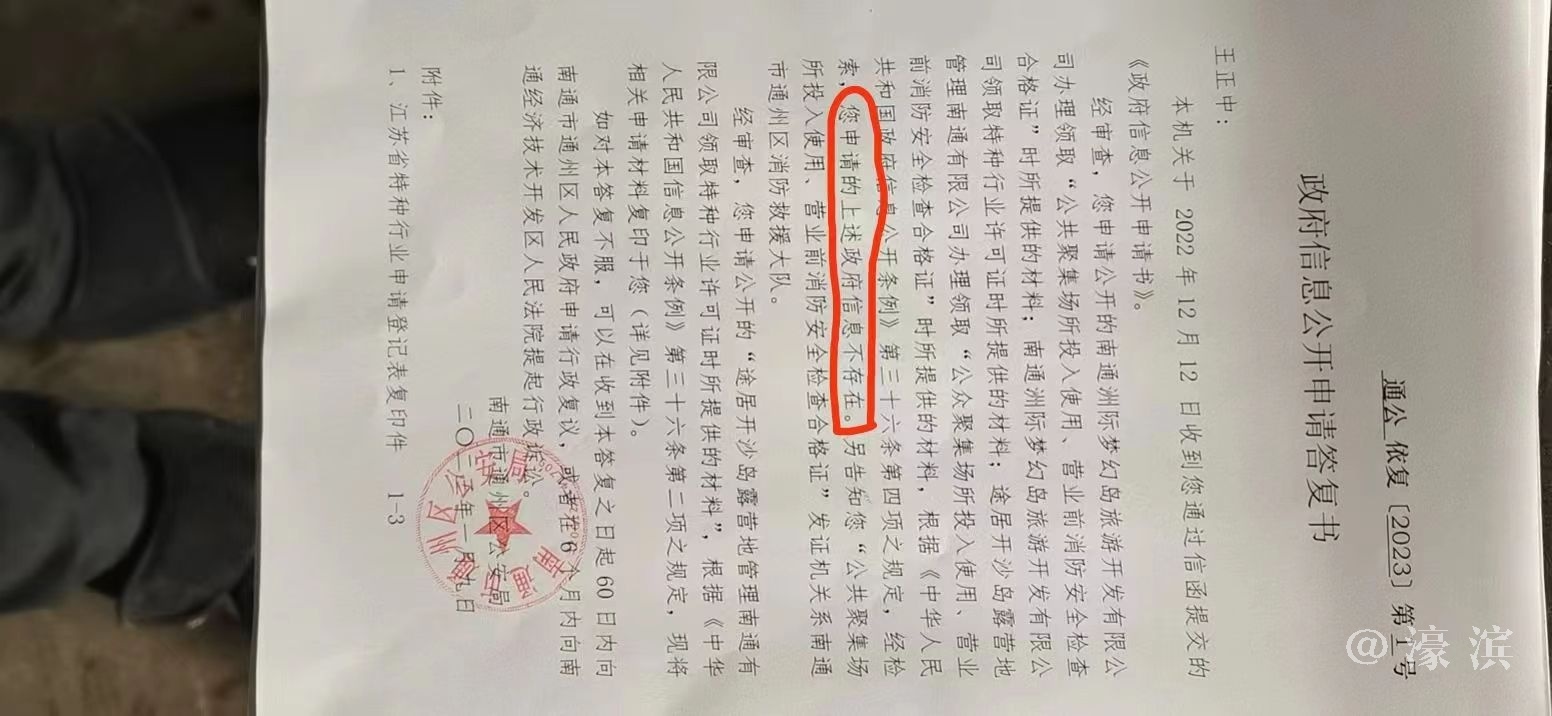 通公 依复〔2023〕第 1 号
政府信息公开申请答复书
王正中：
本机关于 2022 年 12 月 12 日收到您通过信函提交的
《政府信息公开申请书》。
经审查，您申请公开的南通洲际梦幻岛旅游开发有限公
司办理领取“公共聚集场所投入使用、营业前消防安全检查
合格证”时所提供的材料；南通洲际梦幻岛旅游开发有限公
司领取特种行业许可证时所提供的材料；途居开沙岛露营地
管理南通有限公司办理领取“公众聚集场所投入使用、营业
前消防安全检查合格证”时所提供的材料，根据《中华人民
共和国政府信息公开条例》第三十六条第四项之规定，经检
索，您申请的上述政府信息不存在。另告知您“公共聚集场
所投入使用、营业前消防安全检查合格证”发证机关系南通
市通州区消防救援大队。
经审查，您申请公开的“途居开沙岛露营地管理南通有
限公司领取特种行业许可证时所提供的材料”，根据《中华
人民共和国信息公开条例》第三十六条第二项之规定，现将
相关申请材料复印于您（详见附件）。
如对本答复不服，可以在收到本答复之日起 60 日内向
南通市通州区人民政府申请行政复议，或者在 6 个月内向南
通经济技术开发区人民法院提起行政诉讼。
南通市通州区公安局
二〇二三年一月九日
附件：
1、江苏省特种行业申请登记表复印件 1-3
@濠滨